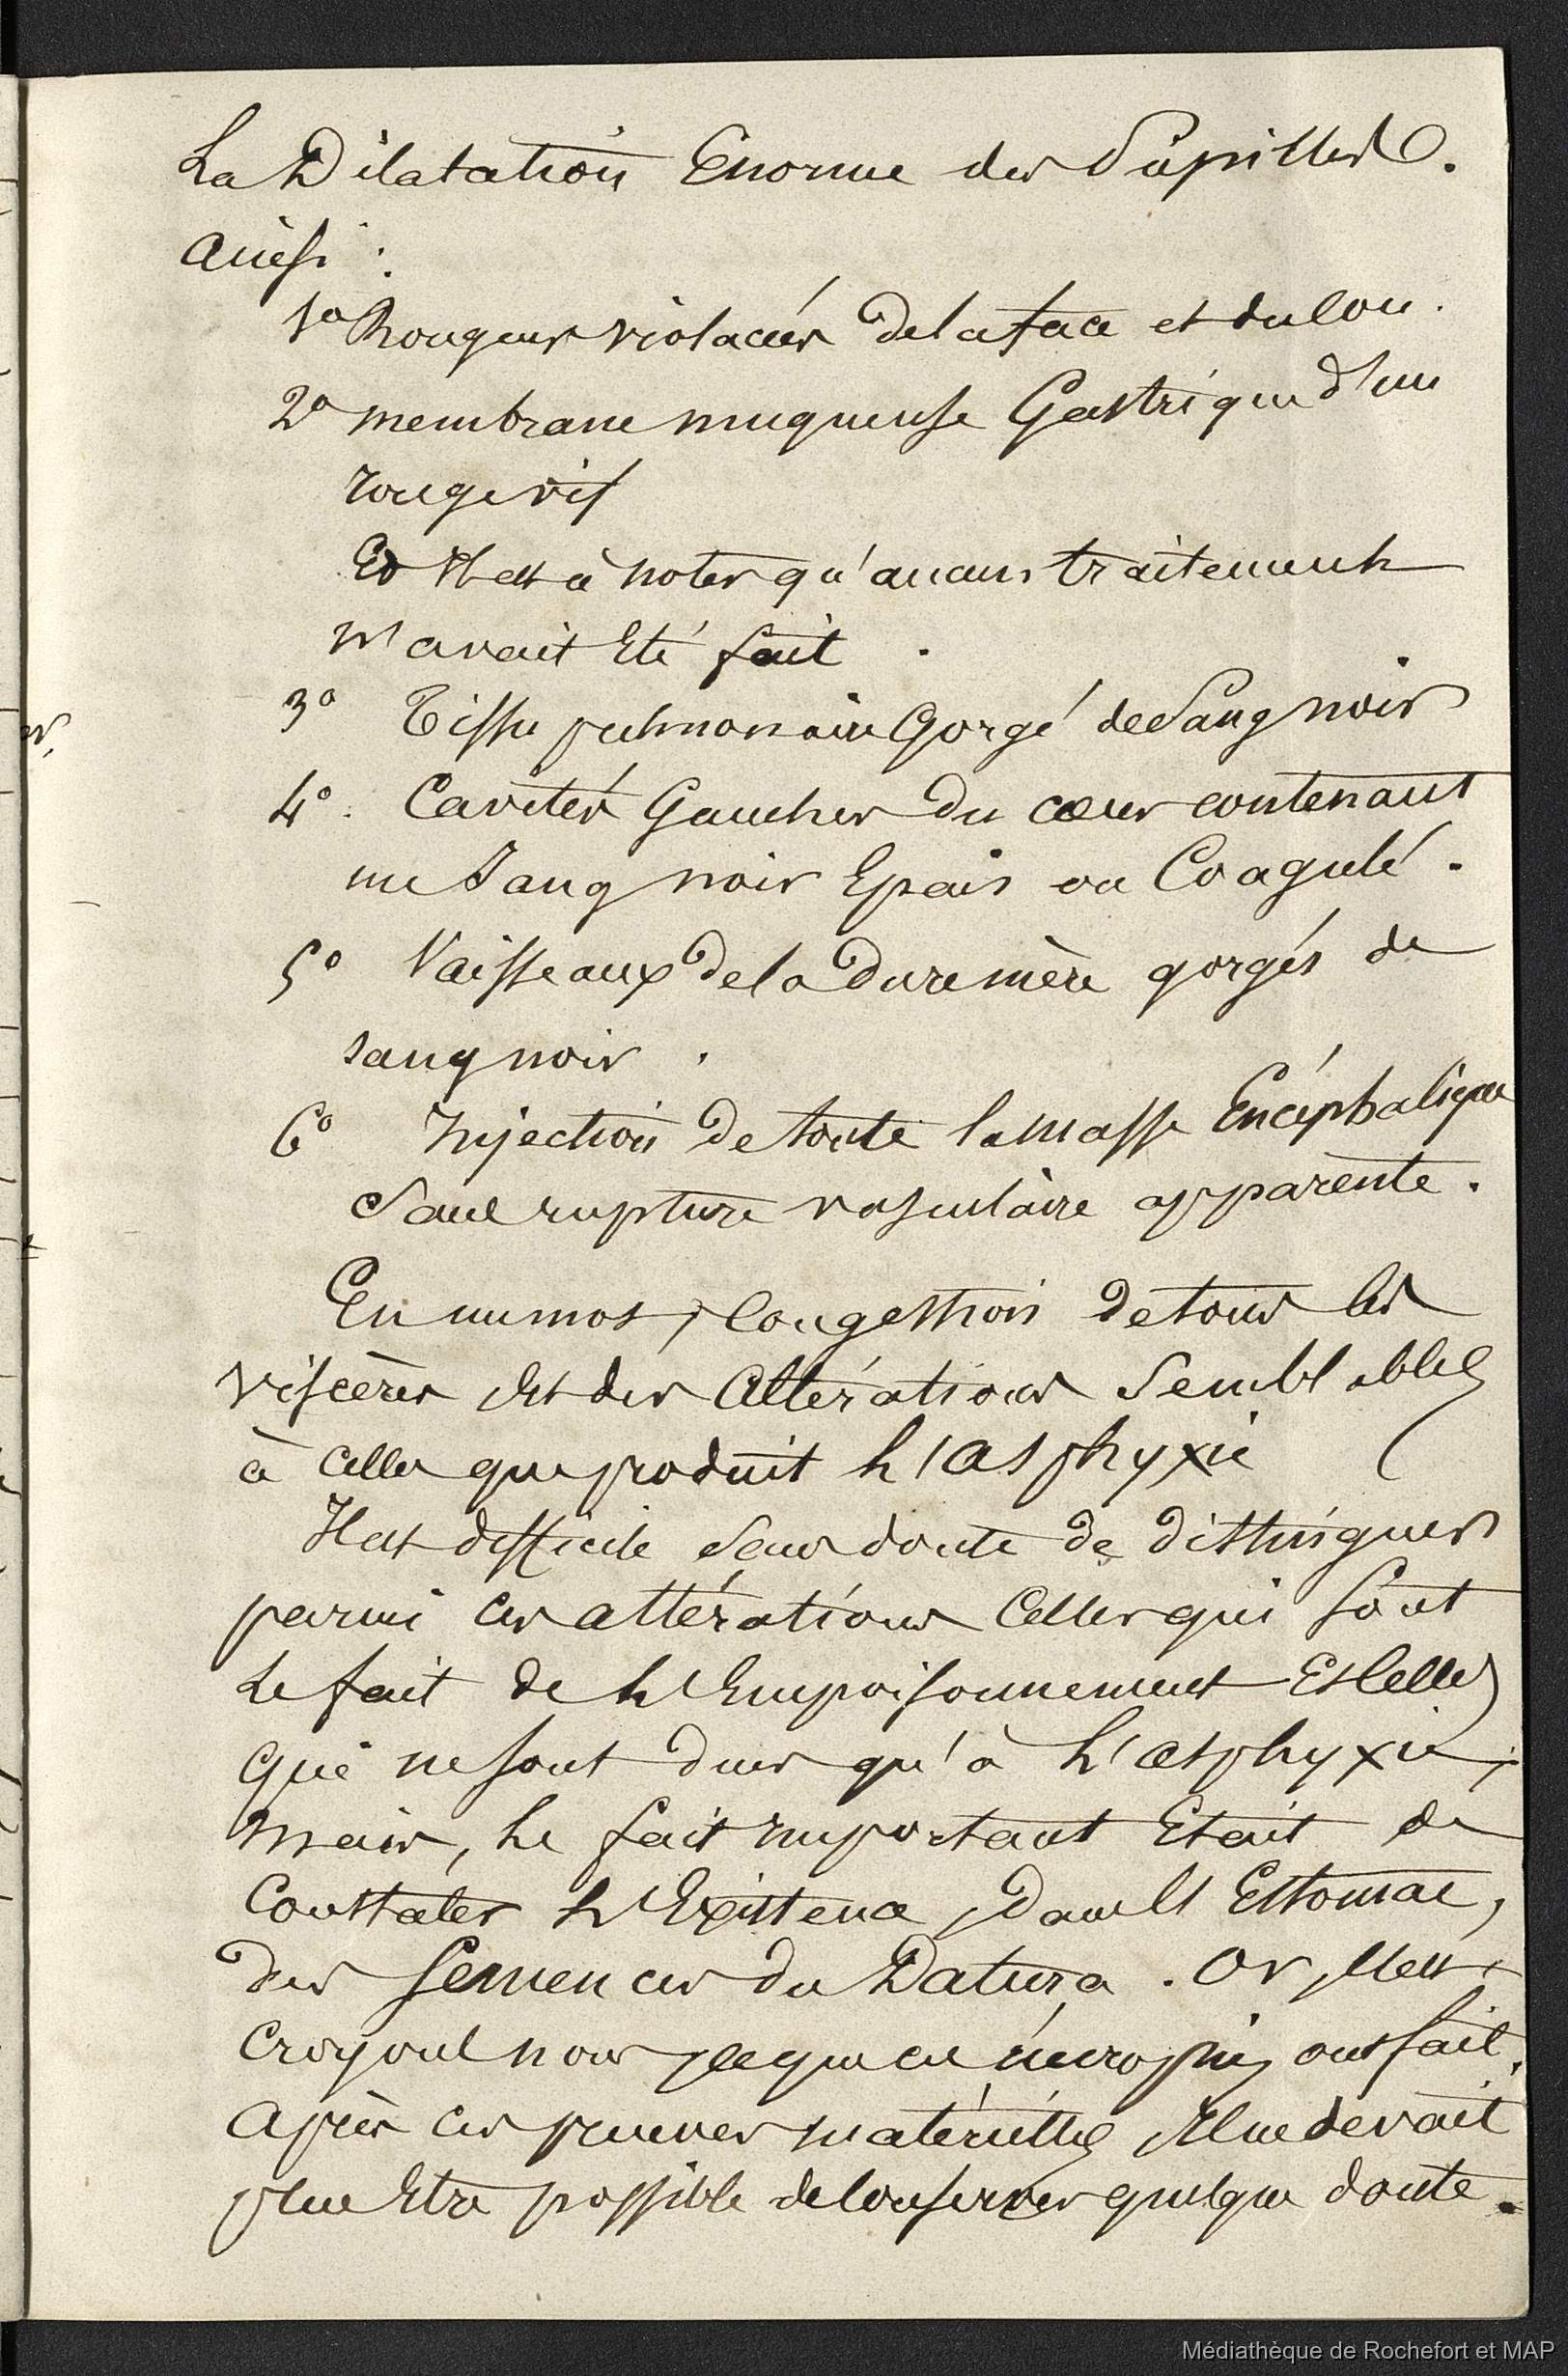 La Dilatation Enorme des Pupilles.
Ainsi :
1° Rougeurs violacées de la face et du Cou.
2° membrane muqueuse Gastrique d'un
rouge vif
Et Il est à noter qu'aucun traitement
n'avait Eté fait.
3° Tissu pulmonaire Gorgé de Sang noir
4° Cavités Gauches du cœur contenant
un Sang noir Epais ou Coagulé.
5° Vaisseaux de la Dure mère gorgés de
sang noir.
6° Injection de toute la masse Encéphalique
Sans rupture vasculaire apparente.
En un mot, Congestion de tous les
viscères Et des Altérations Semblables
à celles que produit l'Asphyxie
Il est difficile Sans doute de distinguer
parmi ces altérations Celles qui sont
le fait de l'Empoisonnement Et Celles
qui ne sont dues qu'à l'asphyxie;
mais, le fait important Etait de
Constater l'Existence, Dans l'Estomac,
des Semences du Datura. Or,
Croyons nous, ce que ces nécropsies ont fait.
Après ces preuves matérielles, Il ne devait
plus Etre possible de Conserver quelque doute.